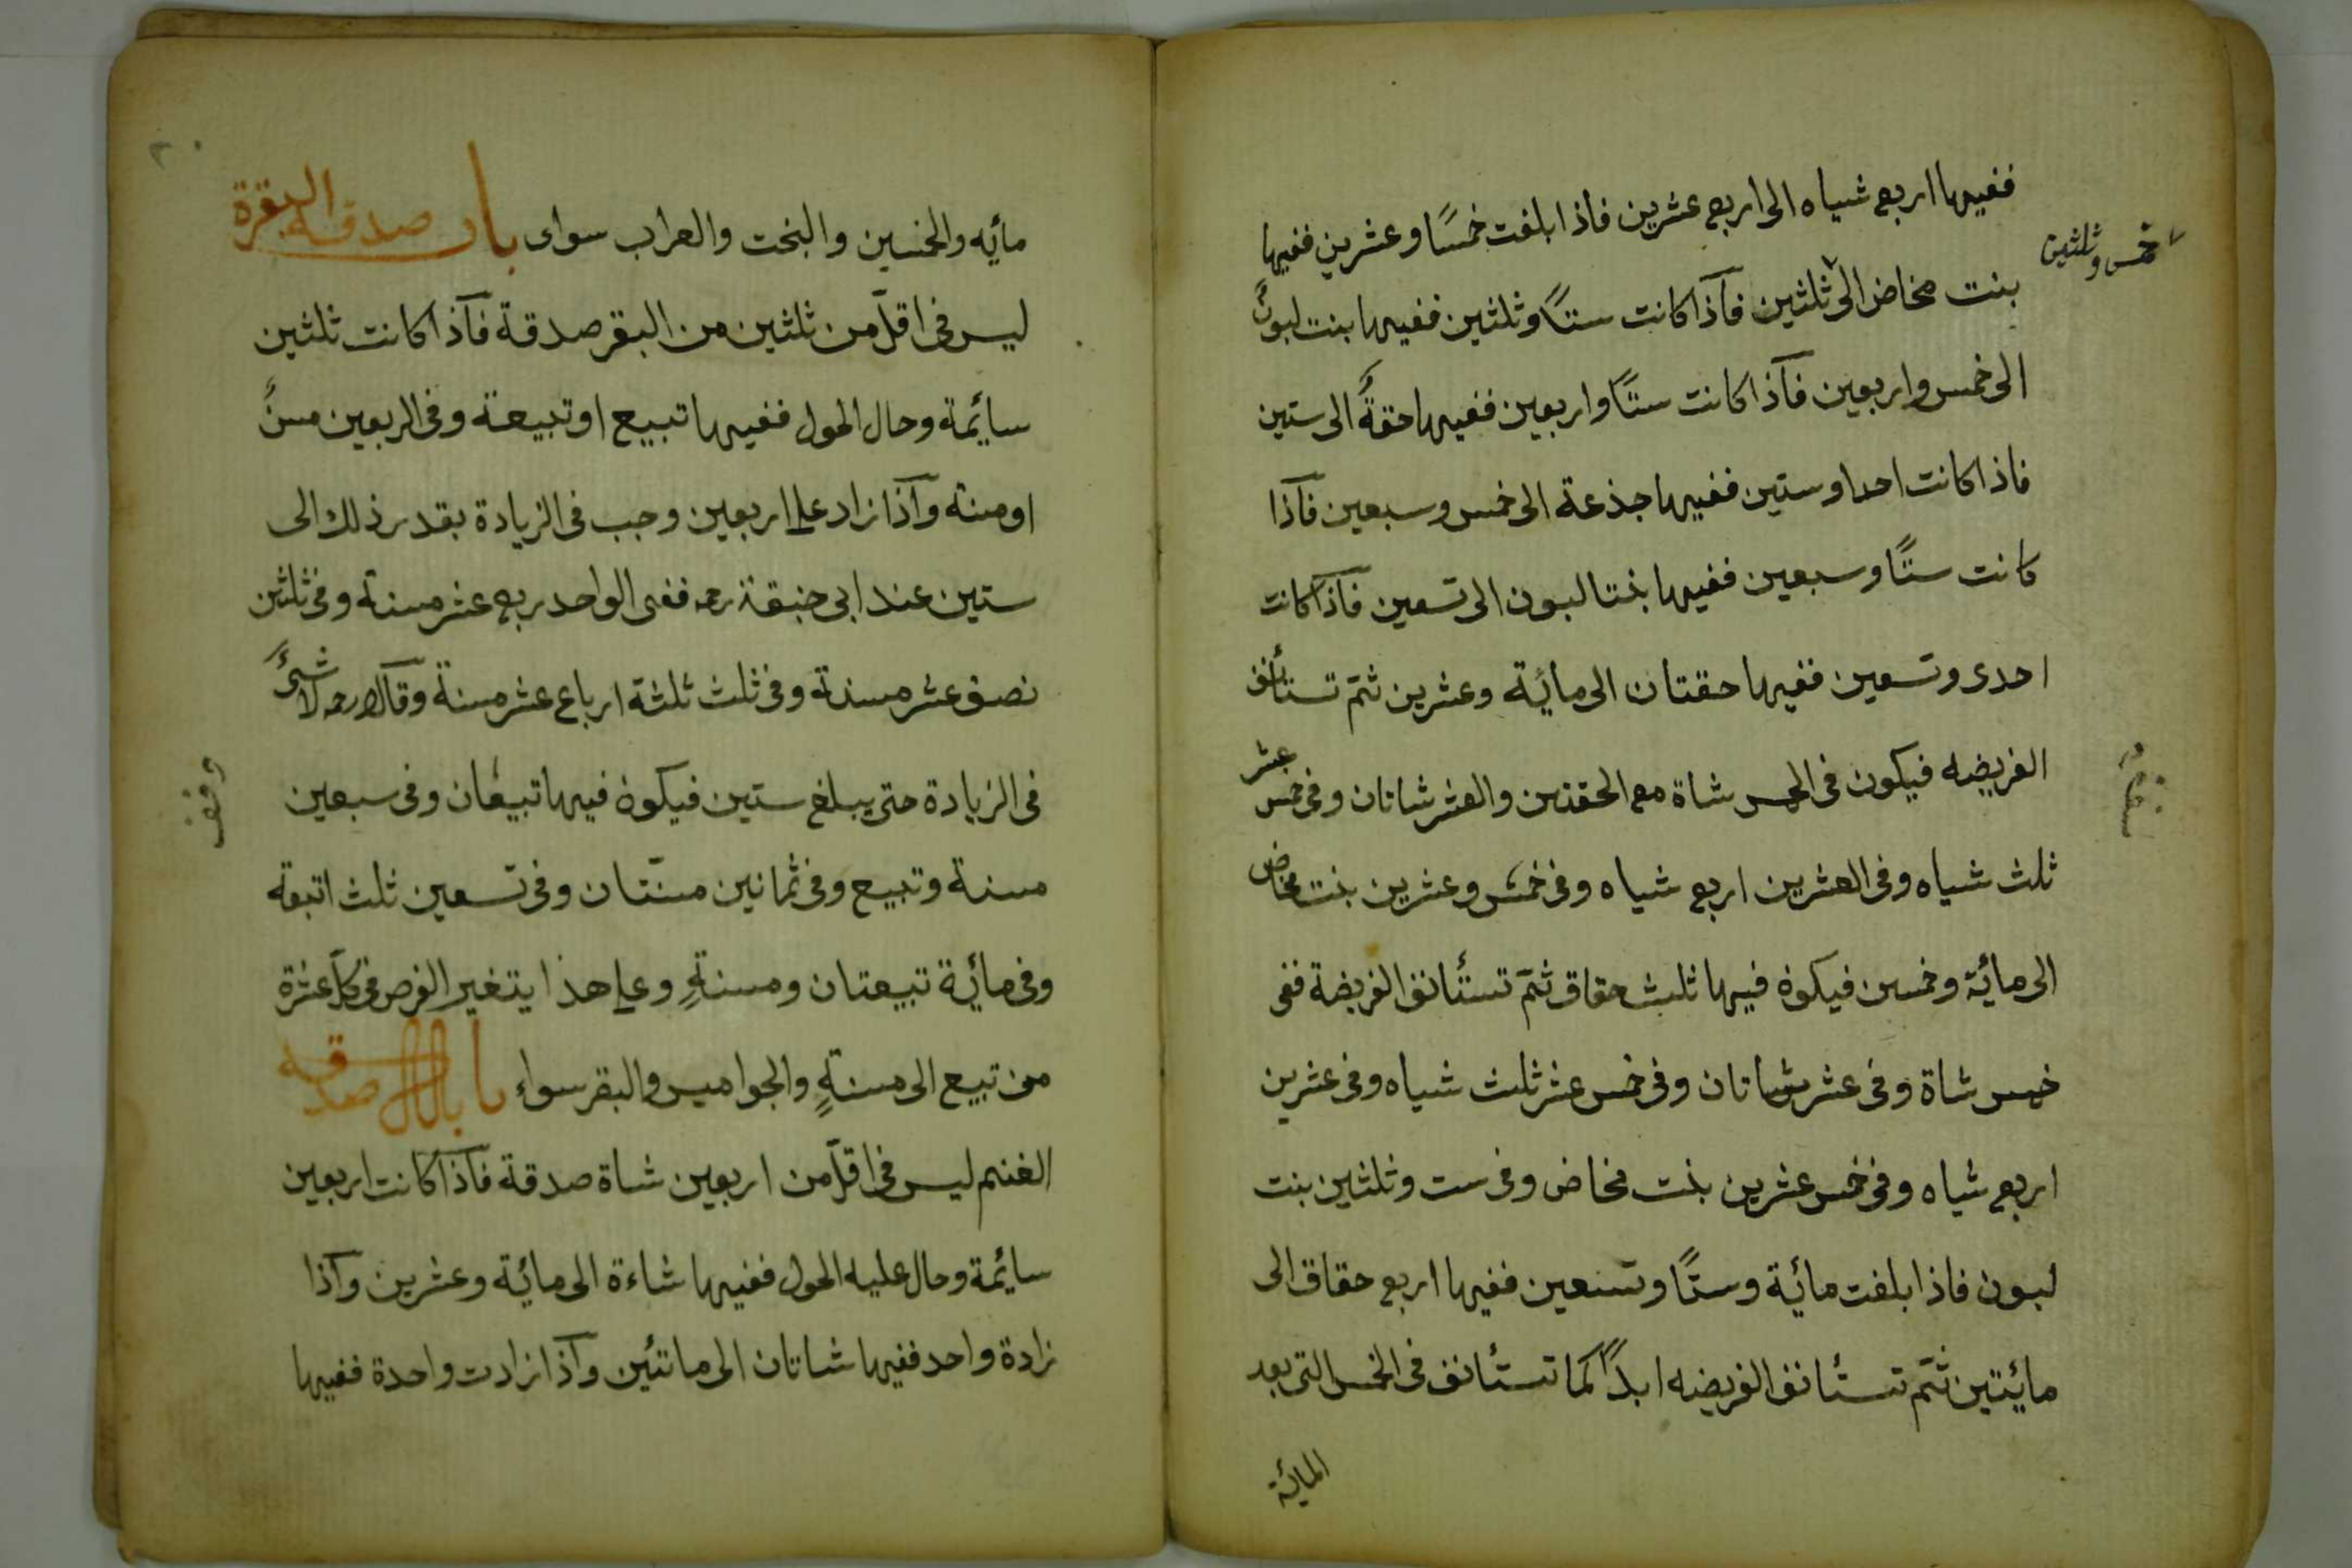 ففيها اربع شياه الى اربع عشرين فاذا بلغت خمسًا وعشرين ففيها
خمس وثلثين
بنت مخاض الى ثلثين فآذا كانت ستًا وثلثين ففيها بنت لبون
الى خمس واربعين فآذا كانت ستًا واربعين ففيها حقةٌ الى ستين
فاذا كانت احدا وستين ففيها جذعة الى خمس وسبعين فآذا
كانت ستًا وسبعين ففيها بنتا لبون الى تسعين فآذا كانت
احدى وتسعين ففيها حقتان الى مائة وعشرين ثمّ تستأنف
الفريضه فيكون فى الخمس شاة مع الحقتين والعشر شاتان وفى خمس عشر
ثلث شياه وفى العشرين اربع شياه وفى خمس وعشرين بنت مخاض
الى مائة وخمسين فيكون فيها ثلث حقاق ثمّ تستأنف الفريضة ففى
خمس شاة وفى عشر شاتان وفى خمس عشر ثلث شياه وفى عشرين
اربع شياه وفى خمس عشرين بنت مخاض وفى ست وثلثين بنت
لبون فاذا بلغت مائة وستًا وتسعين ففيها اربع حقاق الى
مائيتين ثمّ تستأنف الفريضه ابدًا كما تستأنف فى الخمس التى بعد
المائة
مائه والخمسين والبخت والعراب سواى باب صدقه البقرة
ليس فى اقلّ من ثلثين من البقر صدقة فآذا كانت ثلثين
سائمة وحال الحول ففيها تبيع او تبيعة وفى اربعين مسنٌ
او مسنة وآذا زاد على اربعين وجب فى الزيادة بقدر ذلك الى
ستين عند ابى حنيفة رحمه ففى الواحد ربع عشر مسنة وفى ثلثين
نصف عشر مسنة وفى ثلث ثلثة ارباع عشر مسنة وقالا رحمه لا شئٌ
فى الزيادة حتى يبلغ ستين فيكون فيها تبيعان وفى سبعين
وقف
مسنة وتبيع وفى ثمانين مسنّتان وفى تسعين ثلث اتبعة
وفى مائة تبيعتان ومسنةٍ وعلى هذا يتغير الفرض فى كلّ عشرة
من تبيع الى مسنةٍ والجواميس والبقر سواء باب صدقه
الغنم ليس فى اقلّ من اربعين شاة صدقة فآذا كانت اربعين
سائمة وحال عليه الحول ففيها شاءة الى مائة وعشرين وآذا
زادة واحد ففيها شاتان الى مائتين وآذا زادت واحدة ففيها